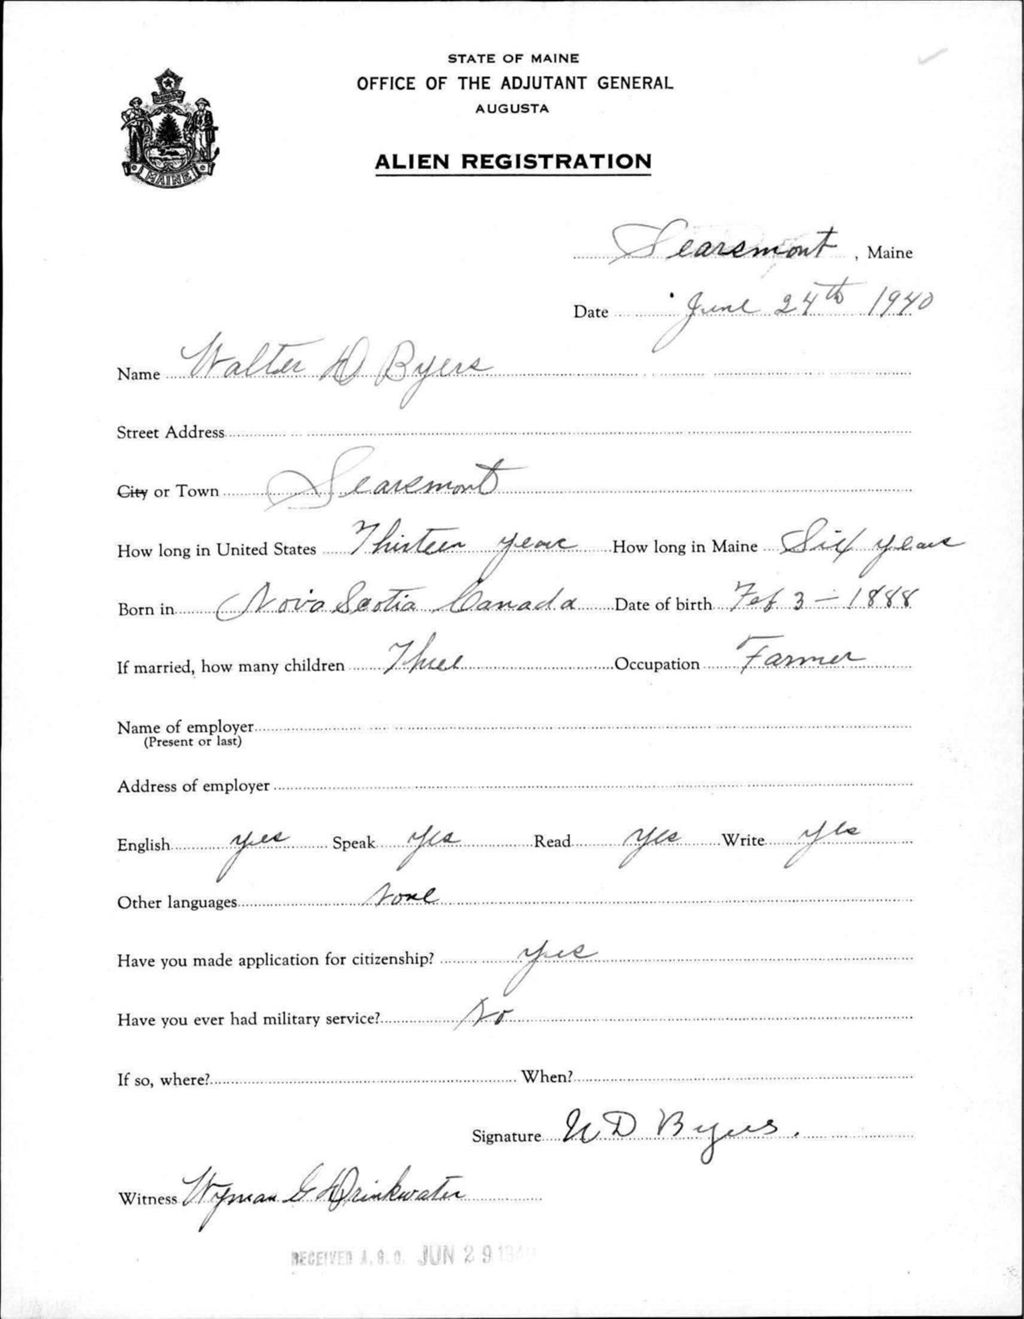 STATE OF MAINE
OFFICE OF THE ADJUTANT GENERAL
AUGUSTA
ALIEN REGISTRATION
MAINE
Searsmont, Maine
Date June 24th 1940
Name Walter D Byers
Street Address
City or Town Searsmont
How long in United States Thirteen years How long in Maine Six years
Born in Nova Scotia Canada Date of birth Feb 3 - 1888
If married, how many children Three Occupation Farmer
Name of employer
(Present or last)
Address of employer
English yes Speak yes Read yes Write yes
Other languages None
Have you made application for citizenship? yes
Have you ever had military service? No
If so, where? When?
Signature W D Byers.
Witness Wyman G Drinkwater
RECEIVED A.G.O. JUN 29 1940